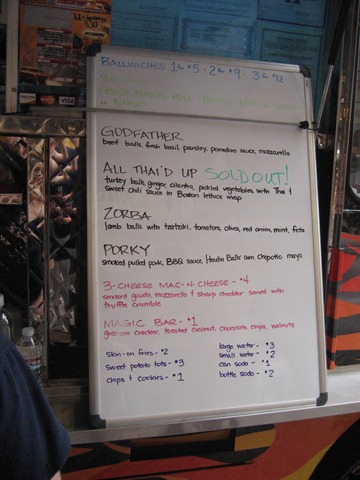 BALLWICHES 1 for $5 - 2 for $9 - 3 for $12
GODFATHER
beef balls, fresh basil, parsley, pomodoro sauce, mozzarella
ALL THAI'D UP SOLD OUT!
turkey balls, ginger, cilantro, pickled vegetables, with Thai &
sweet chili sauce in Boston lettuce wrap
ZORBA
lamb balls with tzatziki, tomatoes, olives, red onions, mint, feta
PORKY
smoked pulled pork, BBQ sauce, Haulin Balls' own chipotle mayo
3-CHEESE MAC-N-CHEESE - $4
smoked gouda, mozzarella & sharp cheddar served with
truffle crumble
MAGIC BAR - $1
graham cracker, toasted coconut, chocolate chips, walnuts
skin-on fries - $2
sweet potato tots - $3
chips & cookies - $1
large water - $3
small water - $2
can soda - $1
bottle soda - $2
VISA